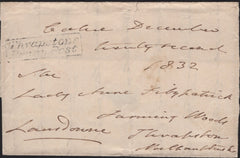 Calne December
twenty second
1832
Thrapstone
Penny Post
The
Lady Anne Fitzpatrick
Farming Woods
Thrapston
Lansdowne
Northamptonshire